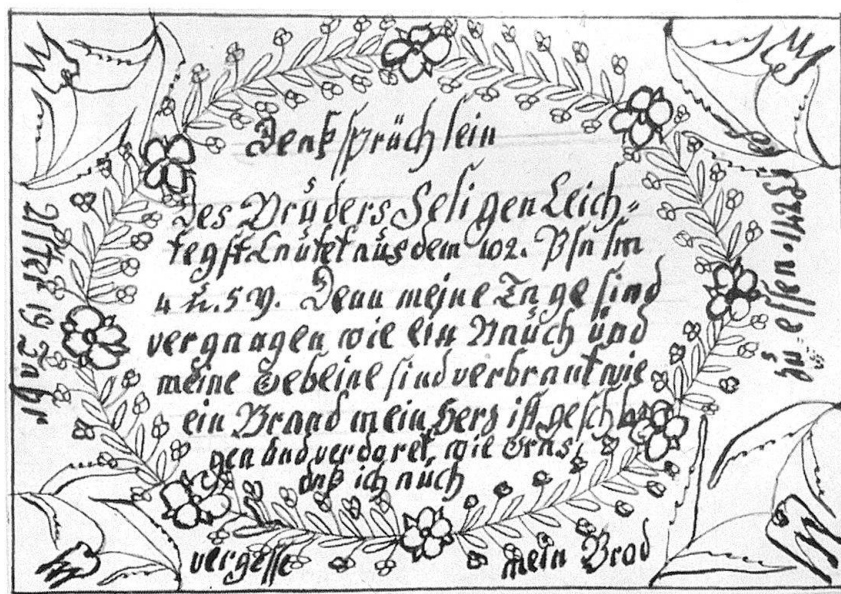 Denksprüchlein
Des Brüders Seligen Leich=
tegst. Lautet aus dem 102. Psalm
4 ü. 5 V. Denn meine Tage sind
vergangen wie ein Rauch ünd
meine Gebeine sind verbrant wie
ein Brand mein Herz ist geschla
gen und verdoret, wie Gras,
daß ich auch
vergesse mein Brod
zü essen.
Alter 19 Jahr